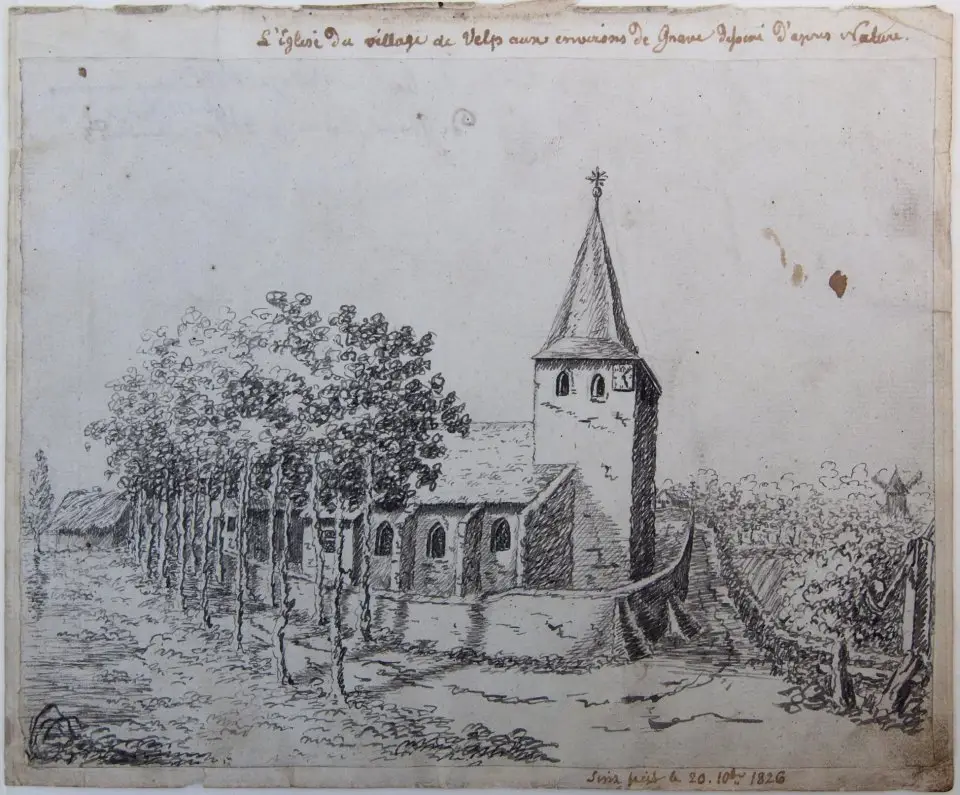 L'Eglise du village de Velp aux environs de Grave dessiné D'apres Nature.
le 20. 10bre 1826